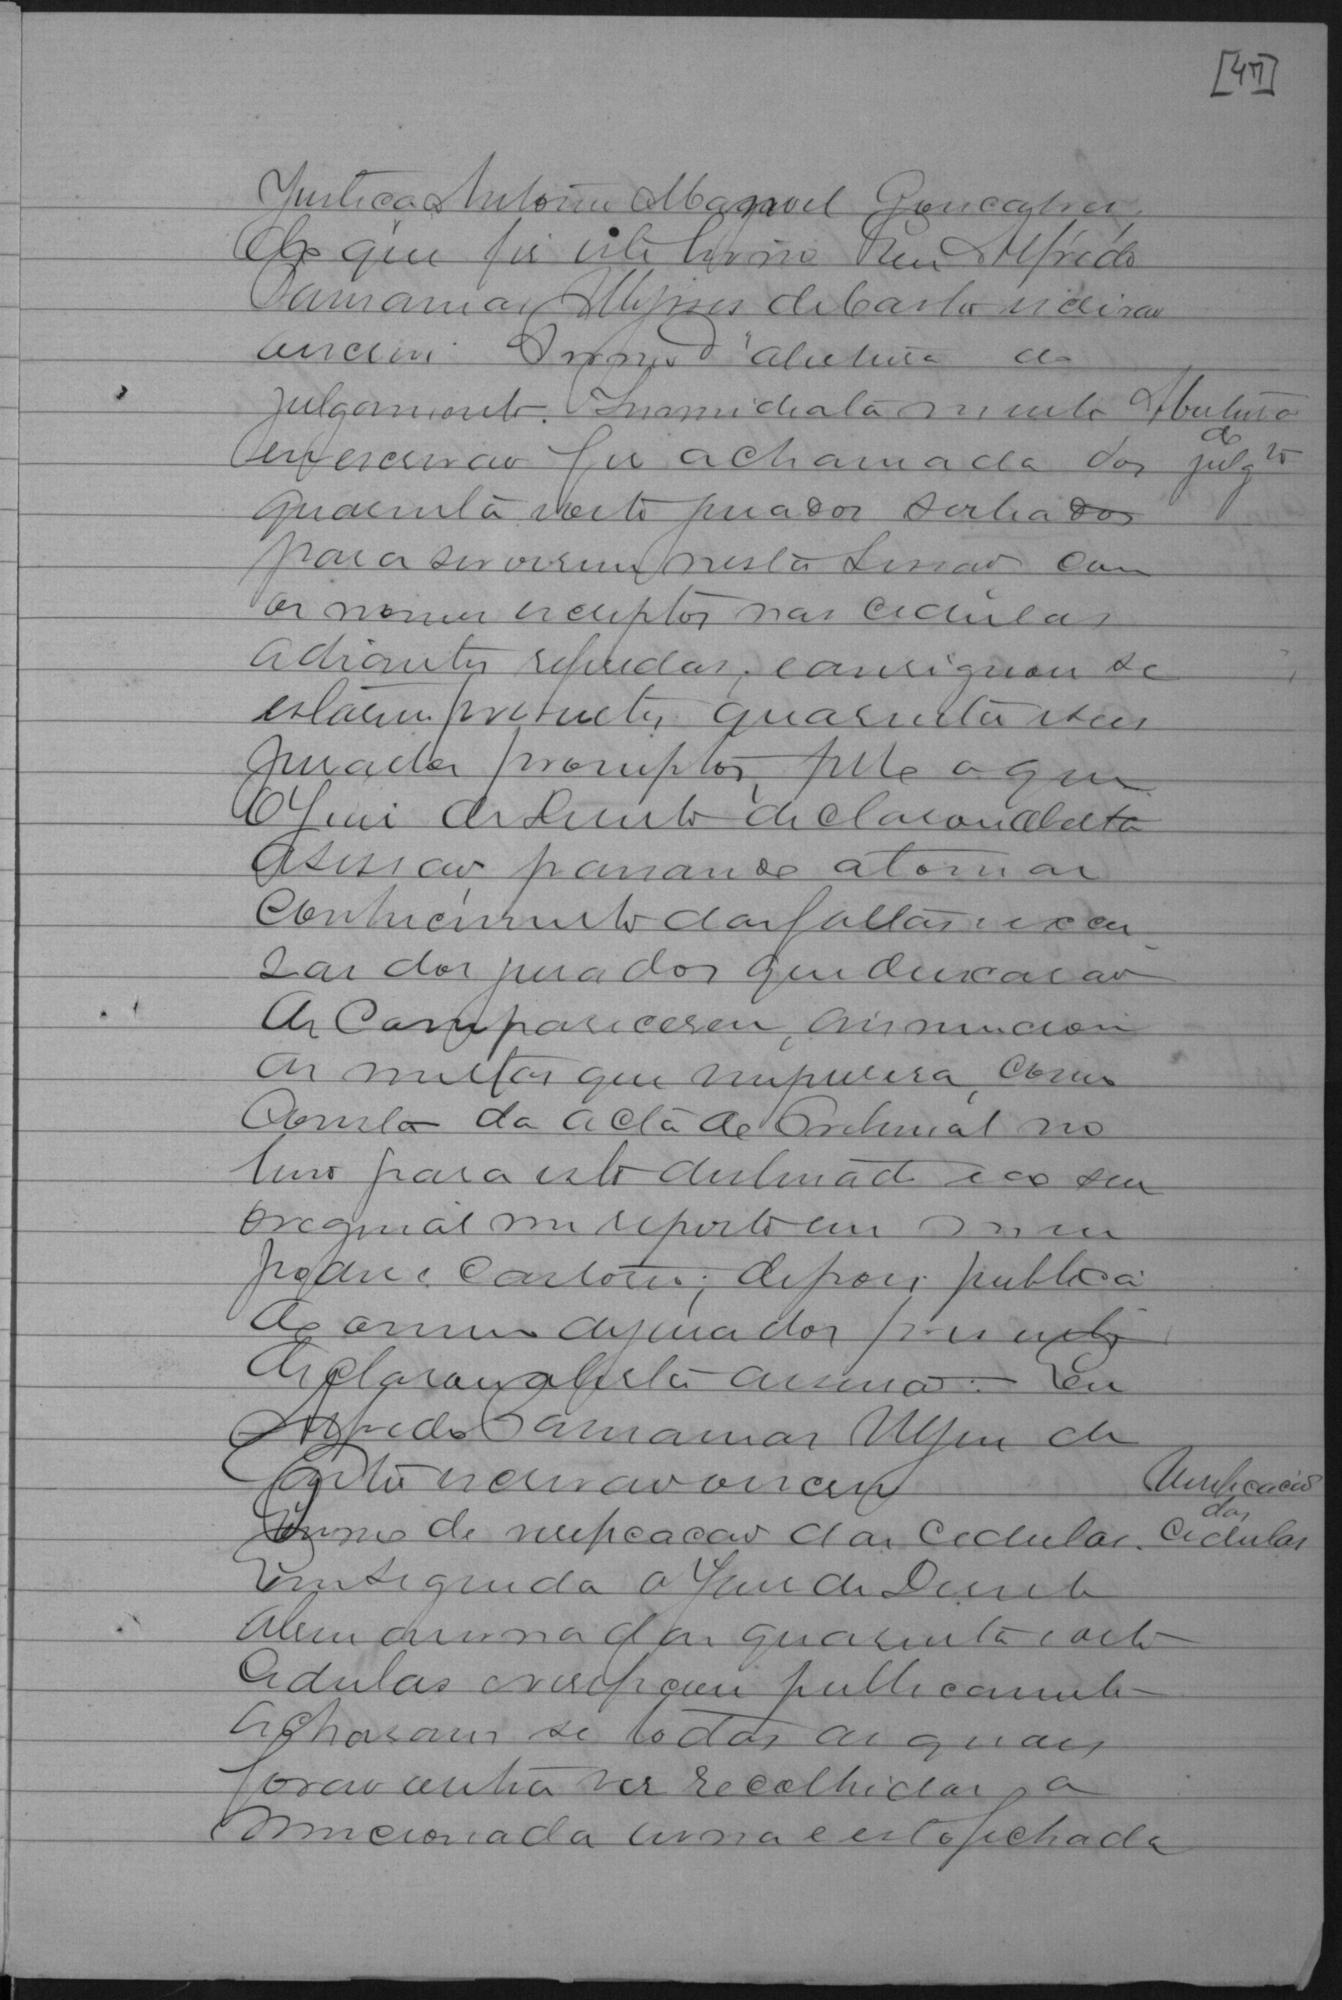 [47]
Justiça Antonio Manoel Gonçalves,
do que fis este termo Eu Alfredo
Ulysses de Castro escrivão
escrevi. Termo d'abertura do
julgamento. Immediatamente
Abertura
do
julgto
o escrivão fes a chamada dos
quarenta e oito jurados sorteados
para servirem nesta sessão com
os nomes escriptos nas cedulas
adiantes referidas, consignou se
estarem presentes quarenta e seis
jurados promptos, pelo o que
O Juis de Direito declarou aberta
a sessão, passando a tomar
conhecimento das faltas e escu
zas dos jurados que deixarão
de comparecerem, annunciou
as multas que impusera, como
consta da acta do Tribunal no
livro para isto destinado e ao seu
original me reporto em meu
poder e cartorio; depois publica
do os nomes de jurados presentes
declarou aberta a sessão. Eu
Alfredo Ulysses de
Castro escrivão o escrevi
Termo de verificação das cedulas.
Verificação
das
Cedulas
Em seguida o Juis de Direito
abriu a urna das quarenta e oito
cedulas e verificou publicamente
acharam se todas as quaes
forão outra ves recolhidas a
mencionada urna e esta fechada